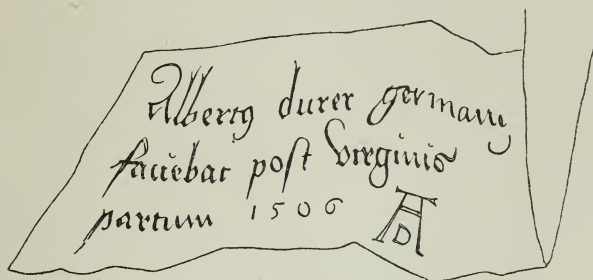 Albertꝰ durer germanꝰ
faciebat post Virginis
partum 1506
AD